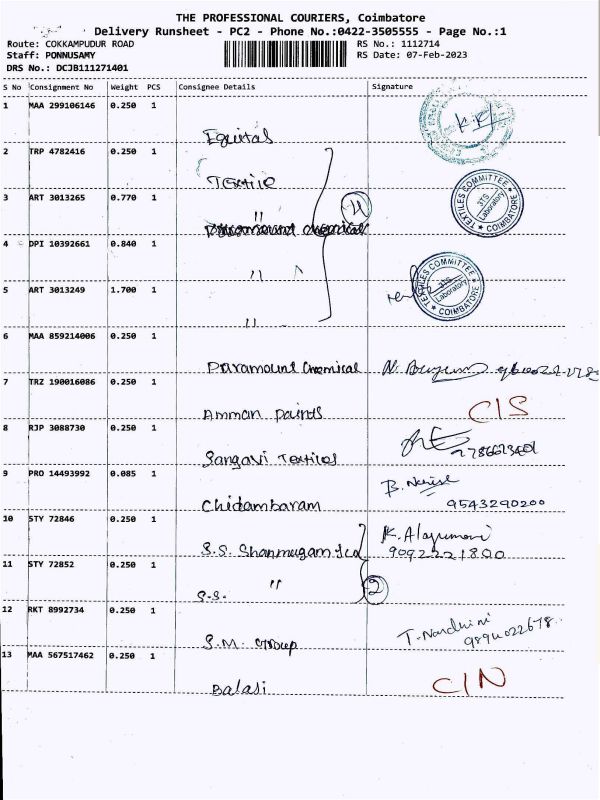 THE PROFESSIONAL COURIERS, Coimbatore
Delivery Runsheet - PC2 - Phone No.:0422-3505555 - Page No.:1
Route: COKKAMPUDUR ROAD RS No.: 1112714
Staff: PONNUSAMY RS Date: 07-Feb-2023
DRS No.: DCJB111271401
S No Consignment No Weight PCS Consignee Details Signature
1 MAA 299106146 0.250 1
Equitas
2 TRP 4782416 0.250 1
Textile
3 ART 3013265 0.770 1
"
TEXTILES COMMITTEE Laboratory COIMBATORE
4 DPI 10392661 0.840 1
"
5 ART 3013249 1.700 1
"
TEXTILES COMMITTEE Laboratory COIMBATORE
6 MAA 859214006 0.250 1
Paramount Chemical
7 TRZ 190016086 0.250 1
Amman Paints C/S
8 RJP 3088730 0.250 1
Sangavi Textiles
9 PRO 14493992 0.085 1
Chidambaram 9543290200
10 STY 72846 0.250 1
S.S. Shanmugam
11 STY 72852 0.250 1
S.S. " 2
12 RKT 8992734 0.250 1
S.M. Group T. Nandhini 9894022678
13 MAA 567517462 0.250 1
Balaji C/N